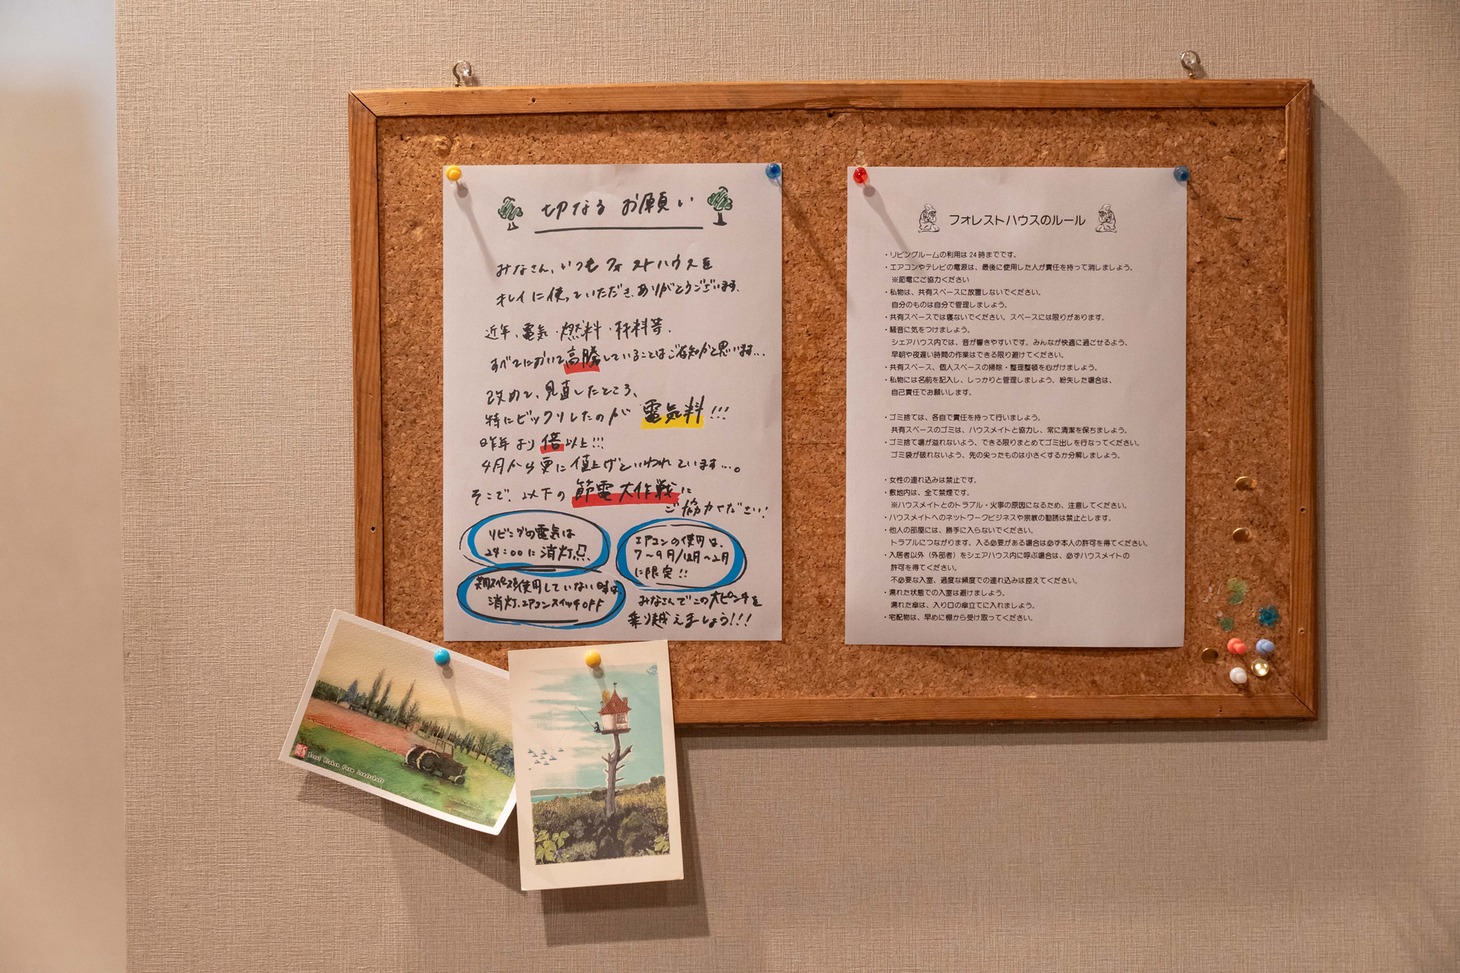 切なる お願い
みなさん、いつも フォレストハウスを
キレイに使っていただき、ありがとうございます。
近年、電気・燃料・材料等、
すべてにおいて高騰していることはご存知かと思います...
改めて、見直したところ、
特にビックリしたのが 電気料!!!
昨年より倍以上!!!
4月から更に値上げといわれています...。
そこで、以下の 節電大作戦に
ご協力ください!
リビングの電気は
24:00に消灯
エアコンの使用は、
7〜9月/12月〜2月
に限定!!
共用スペースを使用していない時は
消灯、エアコンスイッチOFF
みなさんでこの大ピンチを
乗り越えましょう!!!
フォレストハウスのルール
・リビングルームの利用は24時までです。
・エアコンやテレビの電源は、最後に使用した人が責任を持って消しましょう。
※節電にご協力ください
・私物は、共有スペースに放置しないでください。
自分のものは自分で管理しましょう。
・共有スペースでは寝ないでください。スペースには限りがあります。
・騒音に気をつけましょう。
シェアハウス内では、音が響きやすいです。みんなが快適に過ごせるよう、
早朝や夜遅い時間の作業はできる限り避けてください。
・共有スペース、個人スペースの掃除・整理整頓を心がけましょう。
・私物には名前を記入し、しっかりと管理しましょう。紛失した場合は、
自己責任でお願いします。
・ゴミ捨ては、各自で責任を持って行いましょう。
共有スペースのゴミは、ハウスメイトと協力し、常に清潔を保ちましょう。
・ゴミ捨て場が溢れないよう、できる限りまとめてゴミ出しを行なってください。
ゴミ袋が破れないよう、先の尖ったものは小さくするか分解しましょう。
・女性の連れ込みは禁止です。
・敷地内は、全て禁煙です。
※ハウスメイトとのトラブル・火事の原因になるため、注意してください。
・ハウスメイトへのネットワークビジネスや宗教の勧誘は禁止とします。
・他人の部屋には、勝手に入らないでください。
トラブルにつながります。入る必要がある場合は必ず本人の許可を得てください。
・入居者以外（外部者）をシェアハウス内に呼ぶ場合は、必ずハウスメイトの
許可を得てください。
不必要な入室、過度な頻度での連れ込みは控えてください。
・濡れた状態での入室は避けましょう。
濡れた傘は、入り口の傘立てに入れましょう。
・宅配物は、早めに棚から受け取ってください。